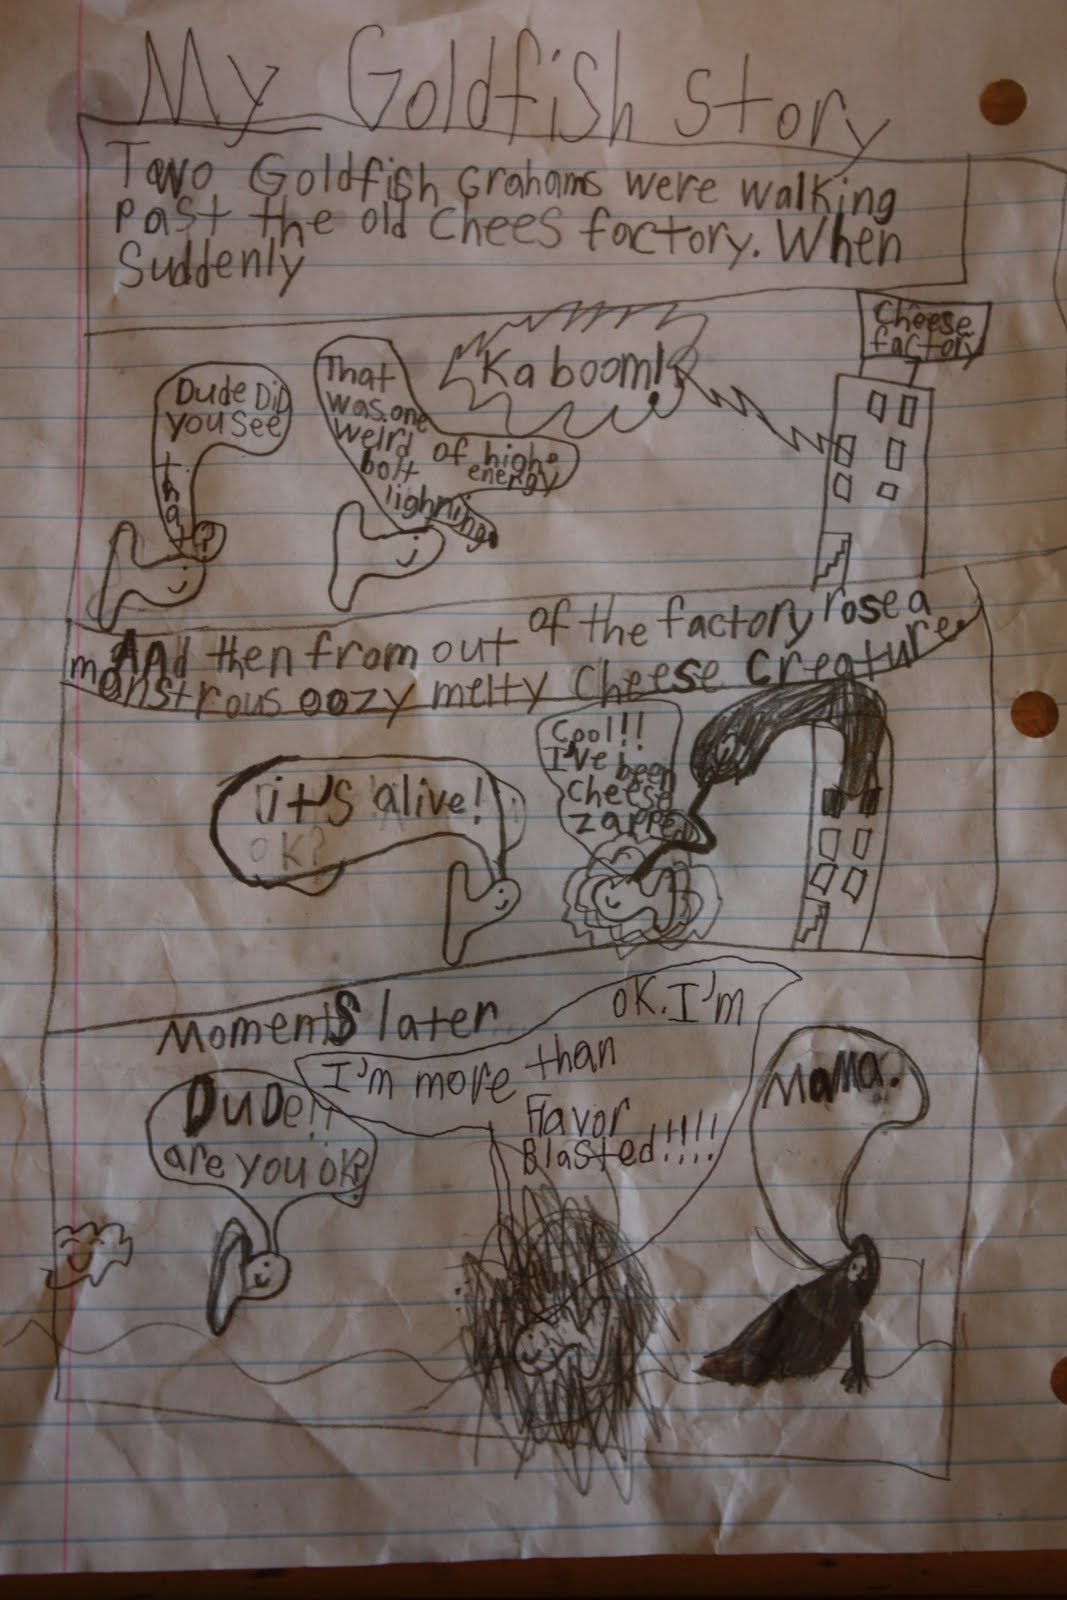 My Goldfish Story
Two Goldfish Grahams were walking
past the old Chees factory. When
Suddenly
Cheese
factory
Ka boom!
Dude Did
you see
that?
That
was one
weird
bolt
of high
energy
lighning.
And then from out of the factory rose a
monstrous oozy melty Cheese Creature
it's alive!
ok?
Cool!!
I've been
Cheese
zapped
Moments later
Dude!!
are you ok?
OK. I'm
I'm more than
Flavor
Blasted!!!!
MaMa.